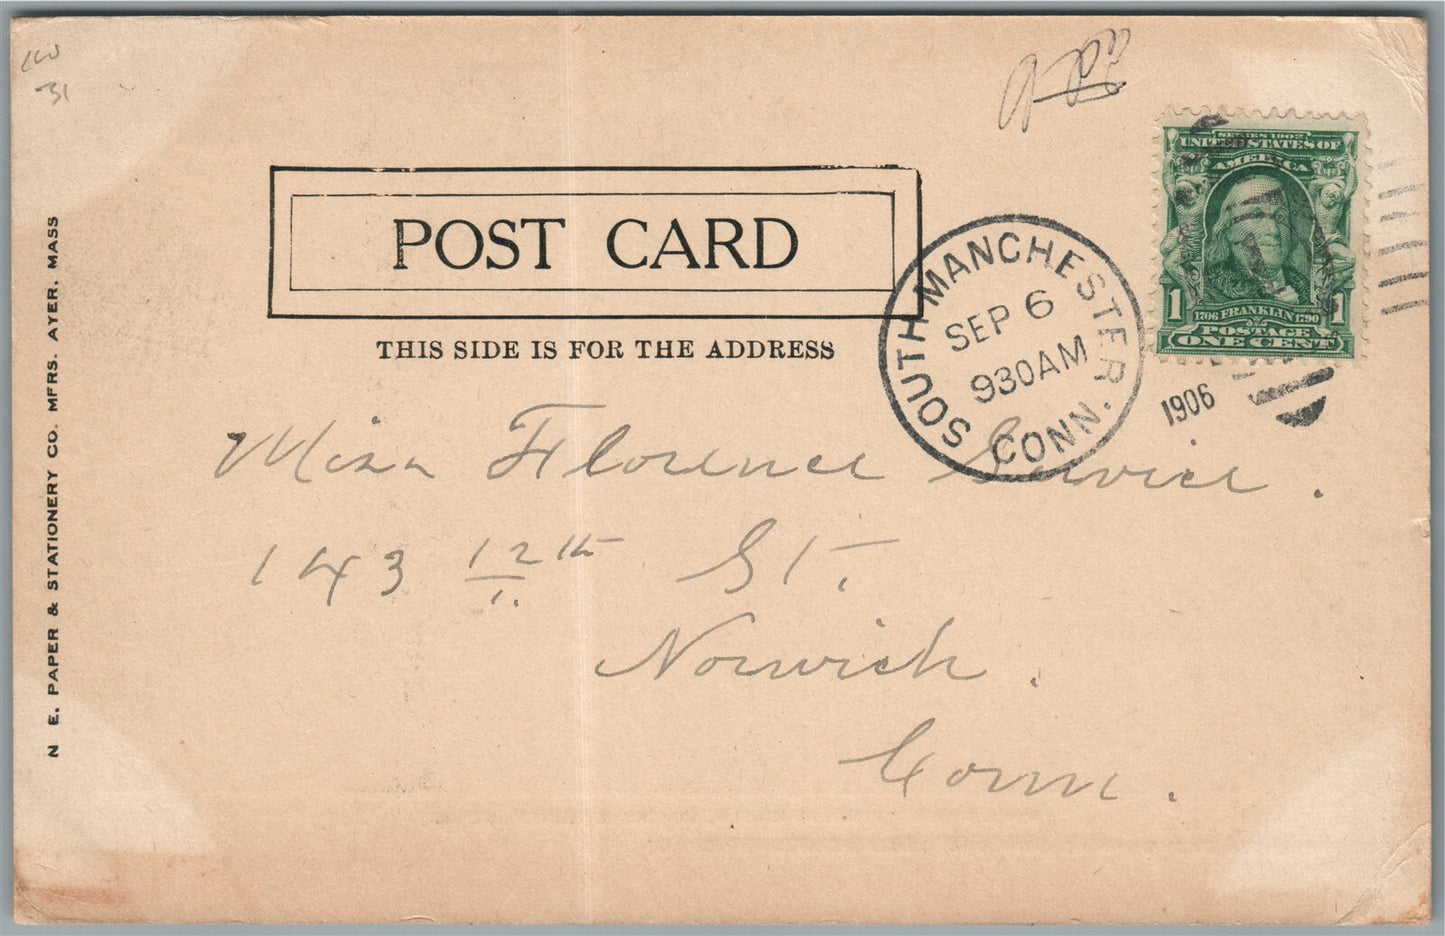 31
POST CARD
THIS SIDE IS FOR THE ADDRESS
N E. PAPER & STATIONERY CO. MFRS. AYER. MASS
SERIES 1902
UNITED STATES OF
AMERICA
1 1
1706 FRANKLIN 1790
POSTAGE
ONE CENT
SOUTH MANCHESTER.
SEP 6
930AM
CONN.
1906
Miss Florence Service.
143 12th St.
Norwich.
Conn.